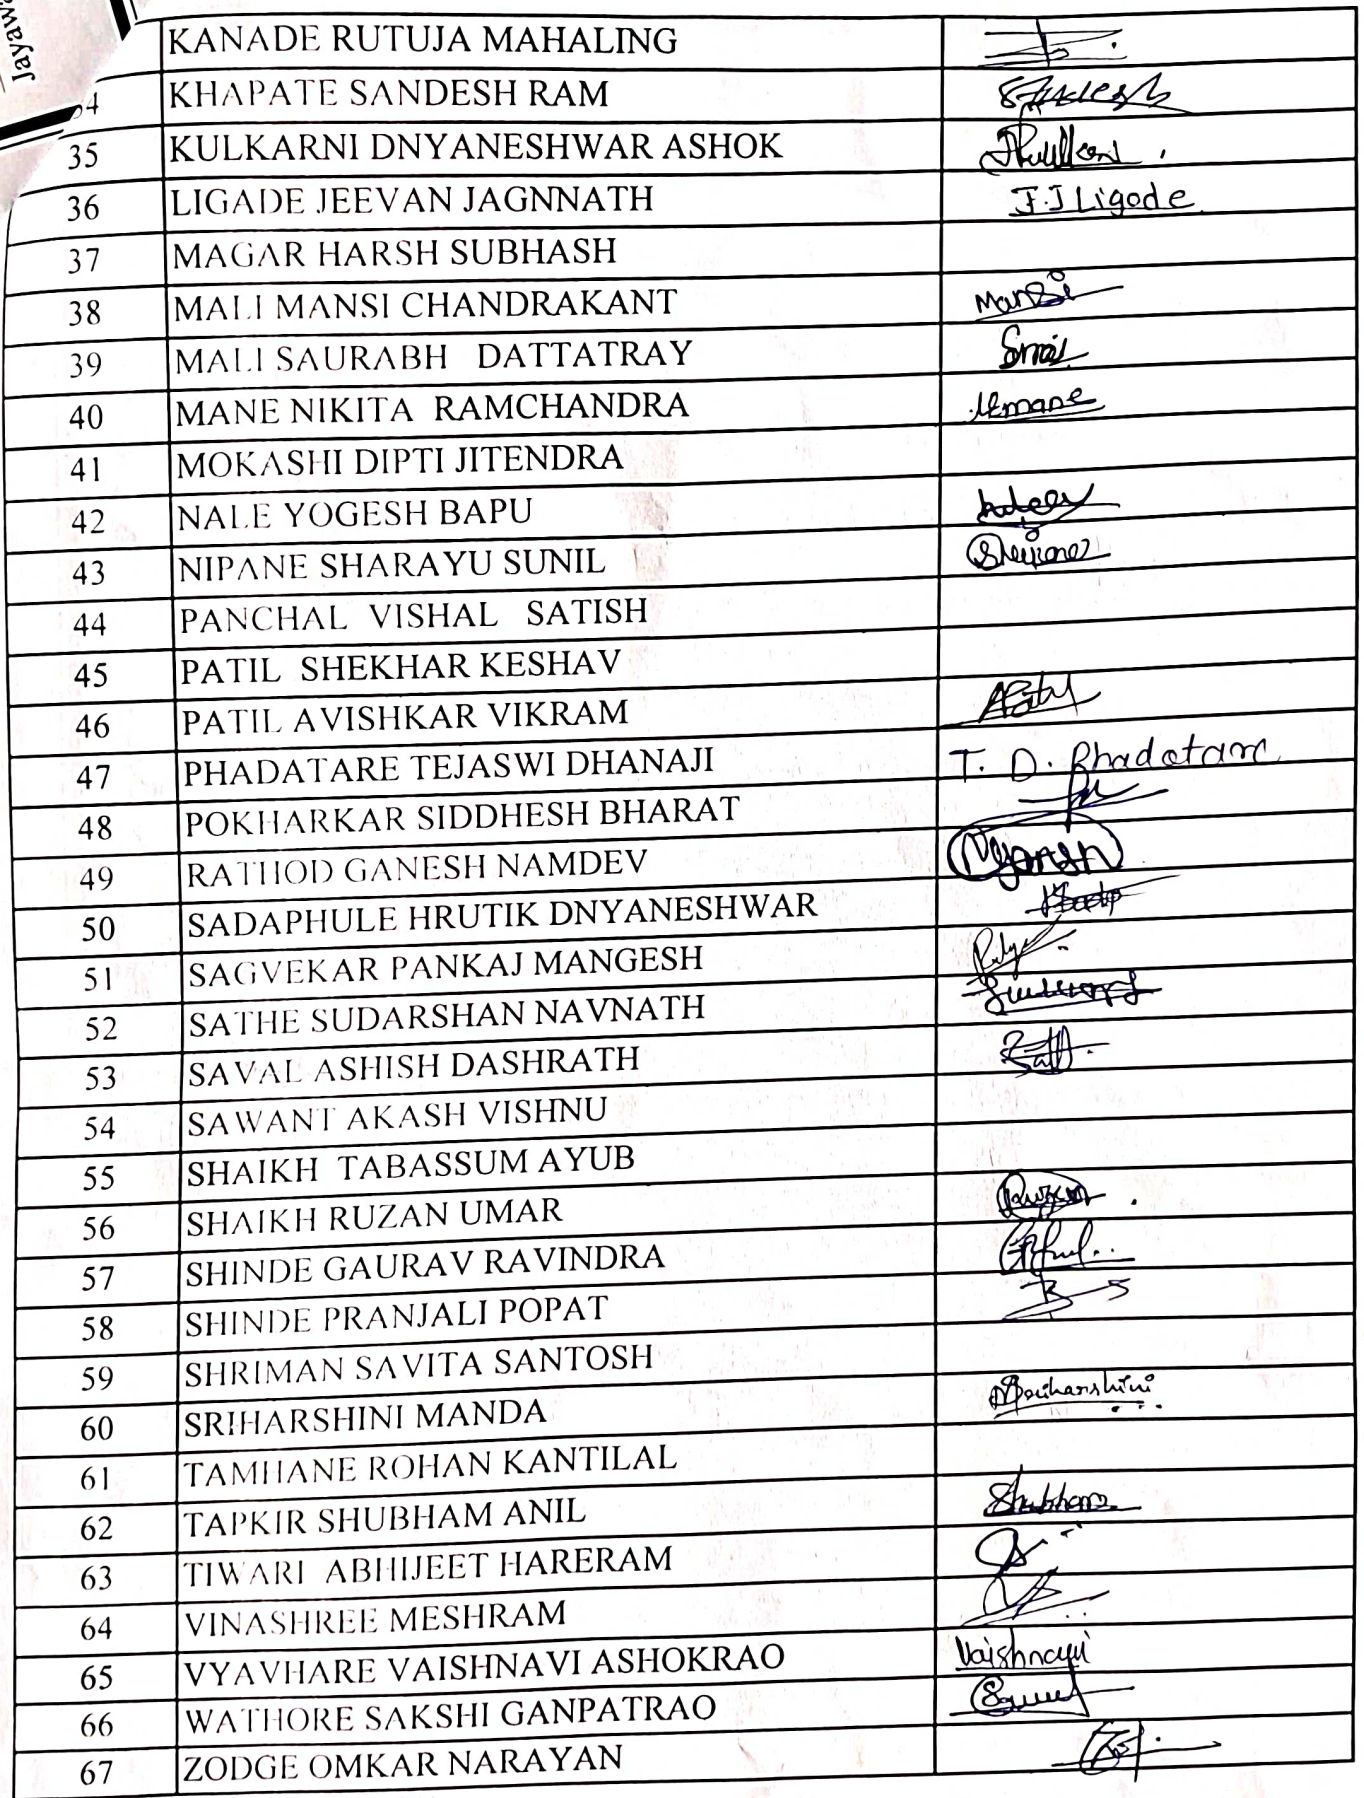 Jayaw
KANADE RUTUJA MAHALING
34 KHAPATE SANDESH RAM Sandesh
35 KULKARNI DNYANESHWAR ASHOK
36 LIGADE JEEVAN JAGNNATH J.J Ligade
37 MAGAR HARSH SUBHASH
38 MALI MANSI CHANDRAKANT Mansi
39 MALI SAURABH DATTATRAY
40 MANE NIKITA RAMCHANDRA
41 MOKASHI DIPTI JITENDRA
42 NALE YOGESH BAPU
43 NIPANE SHARAYU SUNIL
44 PANCHAL VISHAL SATISH
45 PATIL SHEKHAR KESHAV
46 PATIL AVISHKAR VIKRAM
47 PHADATARE TEJASWI DHANAJI T. D. Phadatare
48 POKHARKAR SIDDHESH BHARAT
49 RATHOD GANESH NAMDEV
50 SADAPHULE HRUTIK DNYANESHWAR
51 SAGVEKAR PANKAJ MANGESH
52 SATHE SUDARSHAN NAVNATH
53 SAVAL ASHISH DASHRATH
54 SAWANT AKASH VISHNU
55 SHAIKH TABASSUM AYUB
56 SHAIKH RUZAN UMAR
57 SHINDE GAURAV RAVINDRA
58 SHINDE PRANJALI POPAT
59 SHRIMAN SAVITA SANTOSH
60 SRIHARSHINI MANDA
61 TAMHANE ROHAN KANTILAL
62 TAPKIR SHUBHAM ANIL Shubham
63 TIWARI ABHIJEET HARERAM
64 VINASHREE MESHRAM
65 VYAVHARE VAISHNAVI ASHOKRAO Vaishnavi
66 WATHORE SAKSHI GANPATRAO
67 ZODGE OMKAR NARAYAN